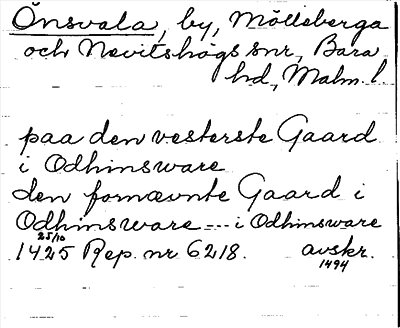 Önsvala, by, Mölleberga
och Nevitshögs snr, Bara
hd, Malm. l.
paa den vesterste Gaard
i Odhinsware
den fornævnte Gaard i
Odhinsware --- i Odhinsware
25/10
1425 Rep. nr 6218. avskr.
1494